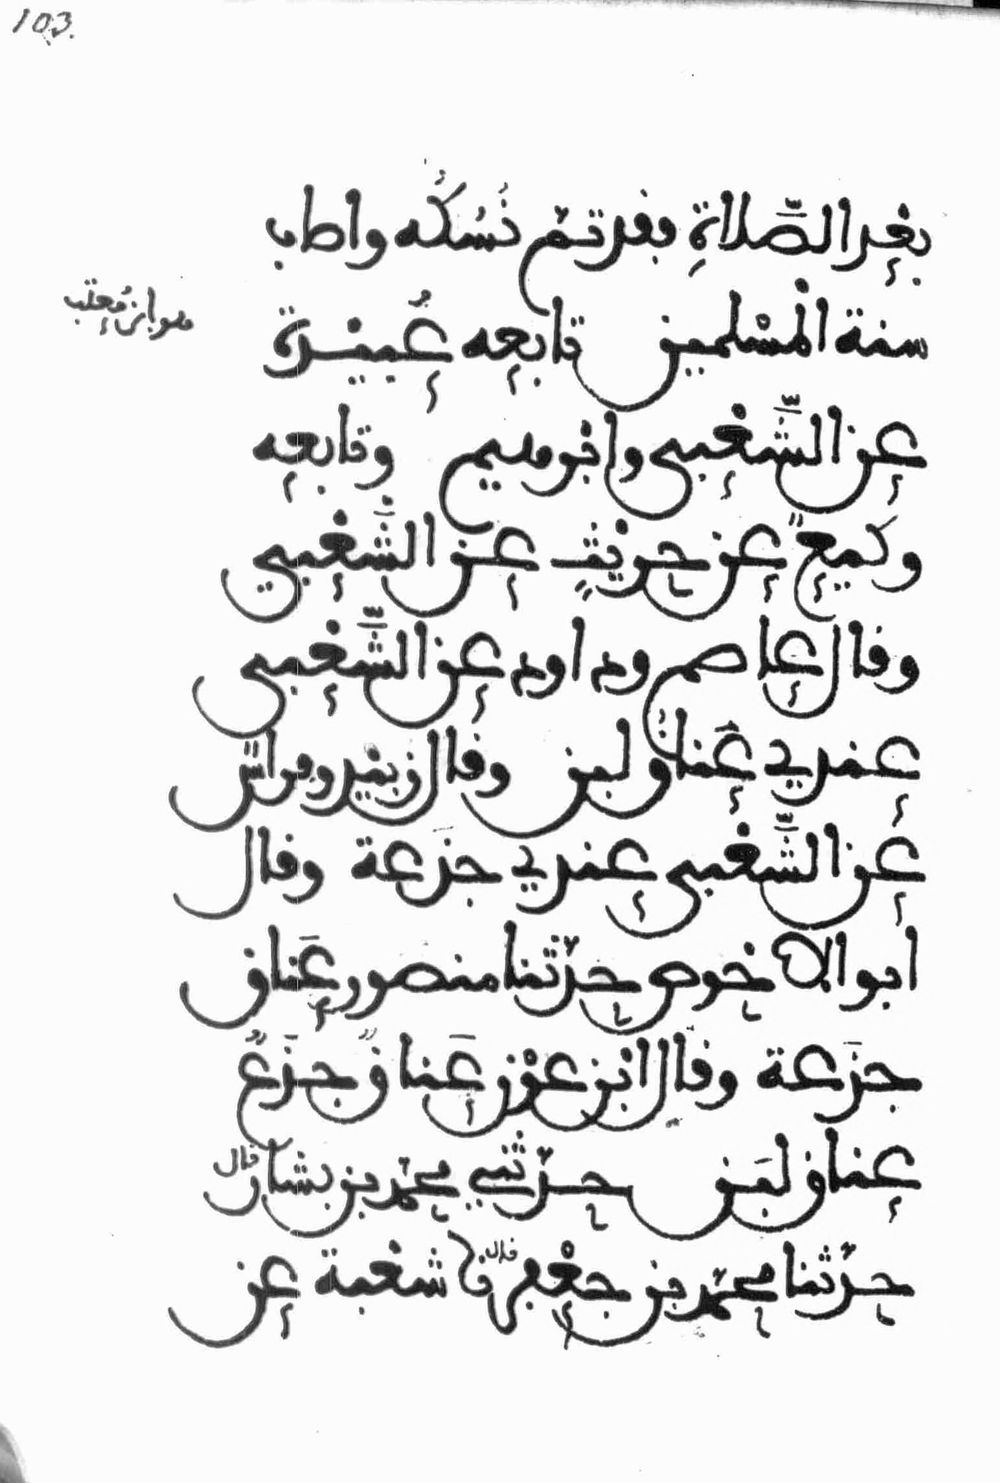 103.
بعد الصَّلاةِ فقد تم نُسُكُه واصاب
سنة الْمسْلمين تابعه عُبيدة
هو ابن مُعتّب
عن الشَّعْبي وابرهيم وتابعه
وكيعٌ عن حريثٍ عن الشَّعْبي
وقال عاصم وداود عن الشَّعْبي
عندي عَناق لبن وقال زبيد وفراسٌ
عن الشَّعْبي عندي جذَعة وقال
ابو الاحْوص حدّثنا منصور عَناق
جذَعة وقال ابْن عوْن عَناقٌ جذَعٌ
عناق لبَن حدّثني محمّد بن بشار قال
حدّثنا محمّد بن جعْفر قال نا شعْبة عن